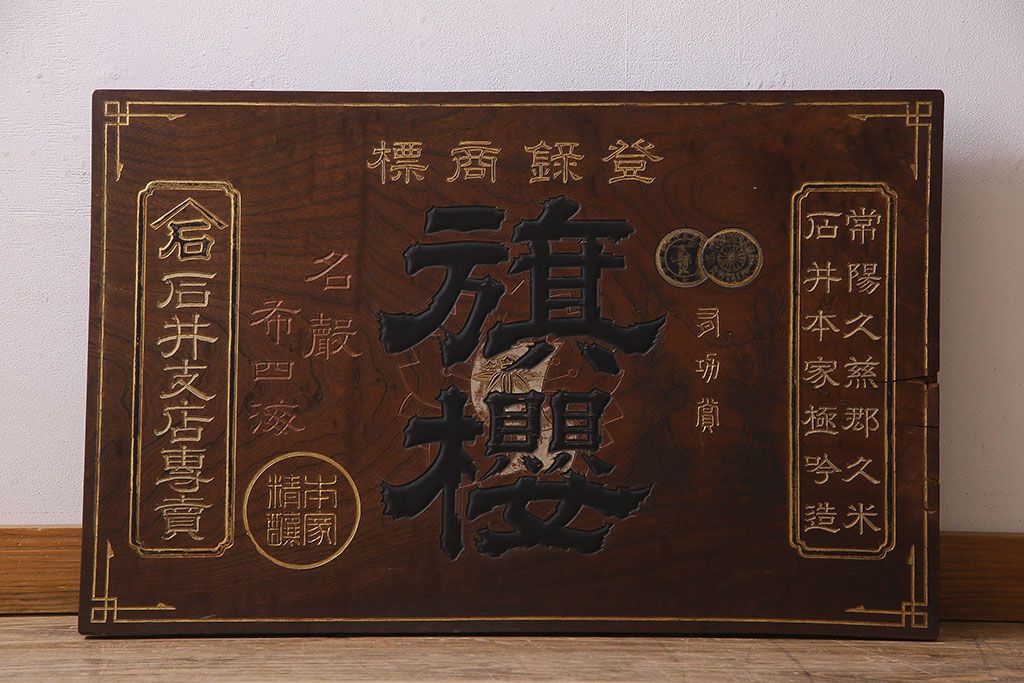 登録商標
常陽久慈郡久米
石井本家極吟造
有功賞
旗櫻
名聲
布四海
本家
精釀
石石井支店専賣